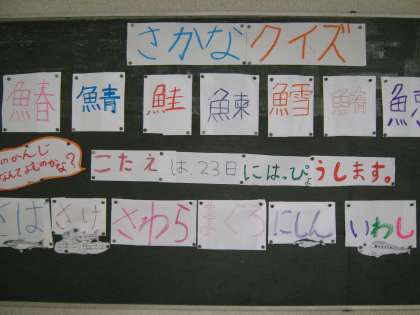 さかなクイズ
鰆 鯖 鮭 鰊 鱈 鮪
のかんじ
なんてよむのかな？
こたえは、23日にはっぴょうします。
さば さけ さわら まぐろ にしん いわし